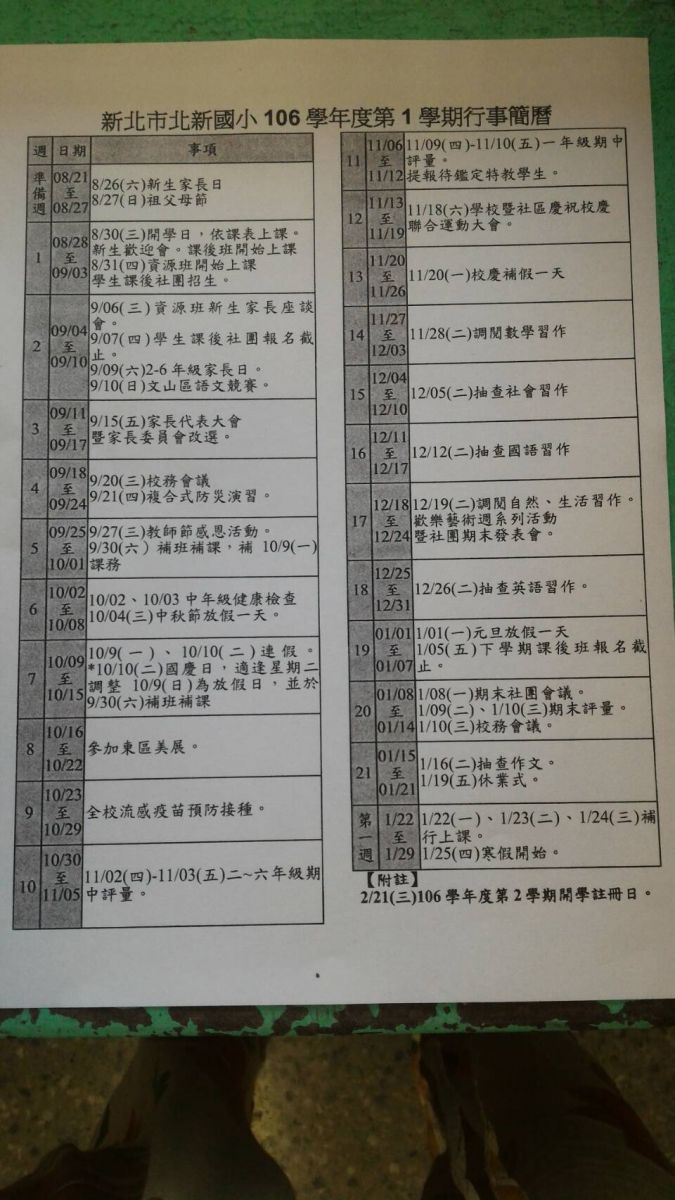 新北市北新國小 106 學年度第 1 學期行事簡曆
週 日期 事項
準備週 08/21 至 08/27
8/26(六)新生家長日
8/27(日)祖父母節
1 08/28 至 09/03
8/30(三)開學日，依課表上課。
新生歡迎會。課後班開始上課
8/31(四)資源班開始上課
學生課後社團招生。
2 09/04 至 09/10
9/06(三)資源班新生家長座談
會。
9/07(四)學生課後社團報名截
止。
9/09(六)2-6 年級家長日。
9/10(日)文山區語文競賽。
3 09/11 至 09/17
9/15(五)家長代表大會
暨家長委員會改選。
4 09/18 至 09/24
9/20(三)校務會議
9/21(四)複合式防災演習。
5 09/25 至 10/01
9/27(三)教師節感恩活動。
9/30(六）補班補課，補 10/9(一)
課務
6 10/02 至 10/08
10/02、10/03 中年級健康檢查
10/04(三)中秋節放假一天。
7 10/09 至 10/15
10/9(一)、10/10(二)連假。
*10/10(二)國慶日，適逢星期二
調整 10/9(日)為放假日，並於
9/30(六)補班補課
8 10/16 至 10/22
參加東區美展。
9 10/23 至 10/29
全校流感疫苗預防接種。
10 10/30 至 11/05
11/02(四)-11/03(五)二~六年級期
中評量。
11 11/06 至 11/12
11/09(四)-11/10(五)一年級期中
評量。
提報待鑑定特教學生。
12 11/13 至 11/19
11/18(六)學校暨社區慶祝校慶
聯合運動大會。
13 11/20 至 11/26
11/20(一)校慶補假一天
14 11/27 至 12/03
11/28(二)調閱數學習作
15 12/04 至 12/10
12/05(二)抽查社會習作
16 12/11 至 12/17
12/12(二)抽查國語習作
17 12/18 至 12/24
12/19(二)調閱自然、生活習作。
歡樂藝術週系列活動
暨社團期末發表會。
18 12/25 至 12/31
12/26(二)抽查英語習作。
19 01/01 至 01/07
1/01(一)元旦放假一天
1/05(五)下學期課後班報名截
止。
20 01/08 至 01/14
1/08(一)期末社團會議。
1/09(二)、1/10(三)期末評量。
1/10(三)校務會議。
21 01/15 至 01/21
1/16(二)抽查作文。
1/19(五)休業式。
第一週 1/22 至 1/29
1/22(一)、1/23(二)、1/24(三)補
行上課。
1/25(四)寒假開始。
【附註】
2/21(三)106 學年度第 2 學期開學註冊日。